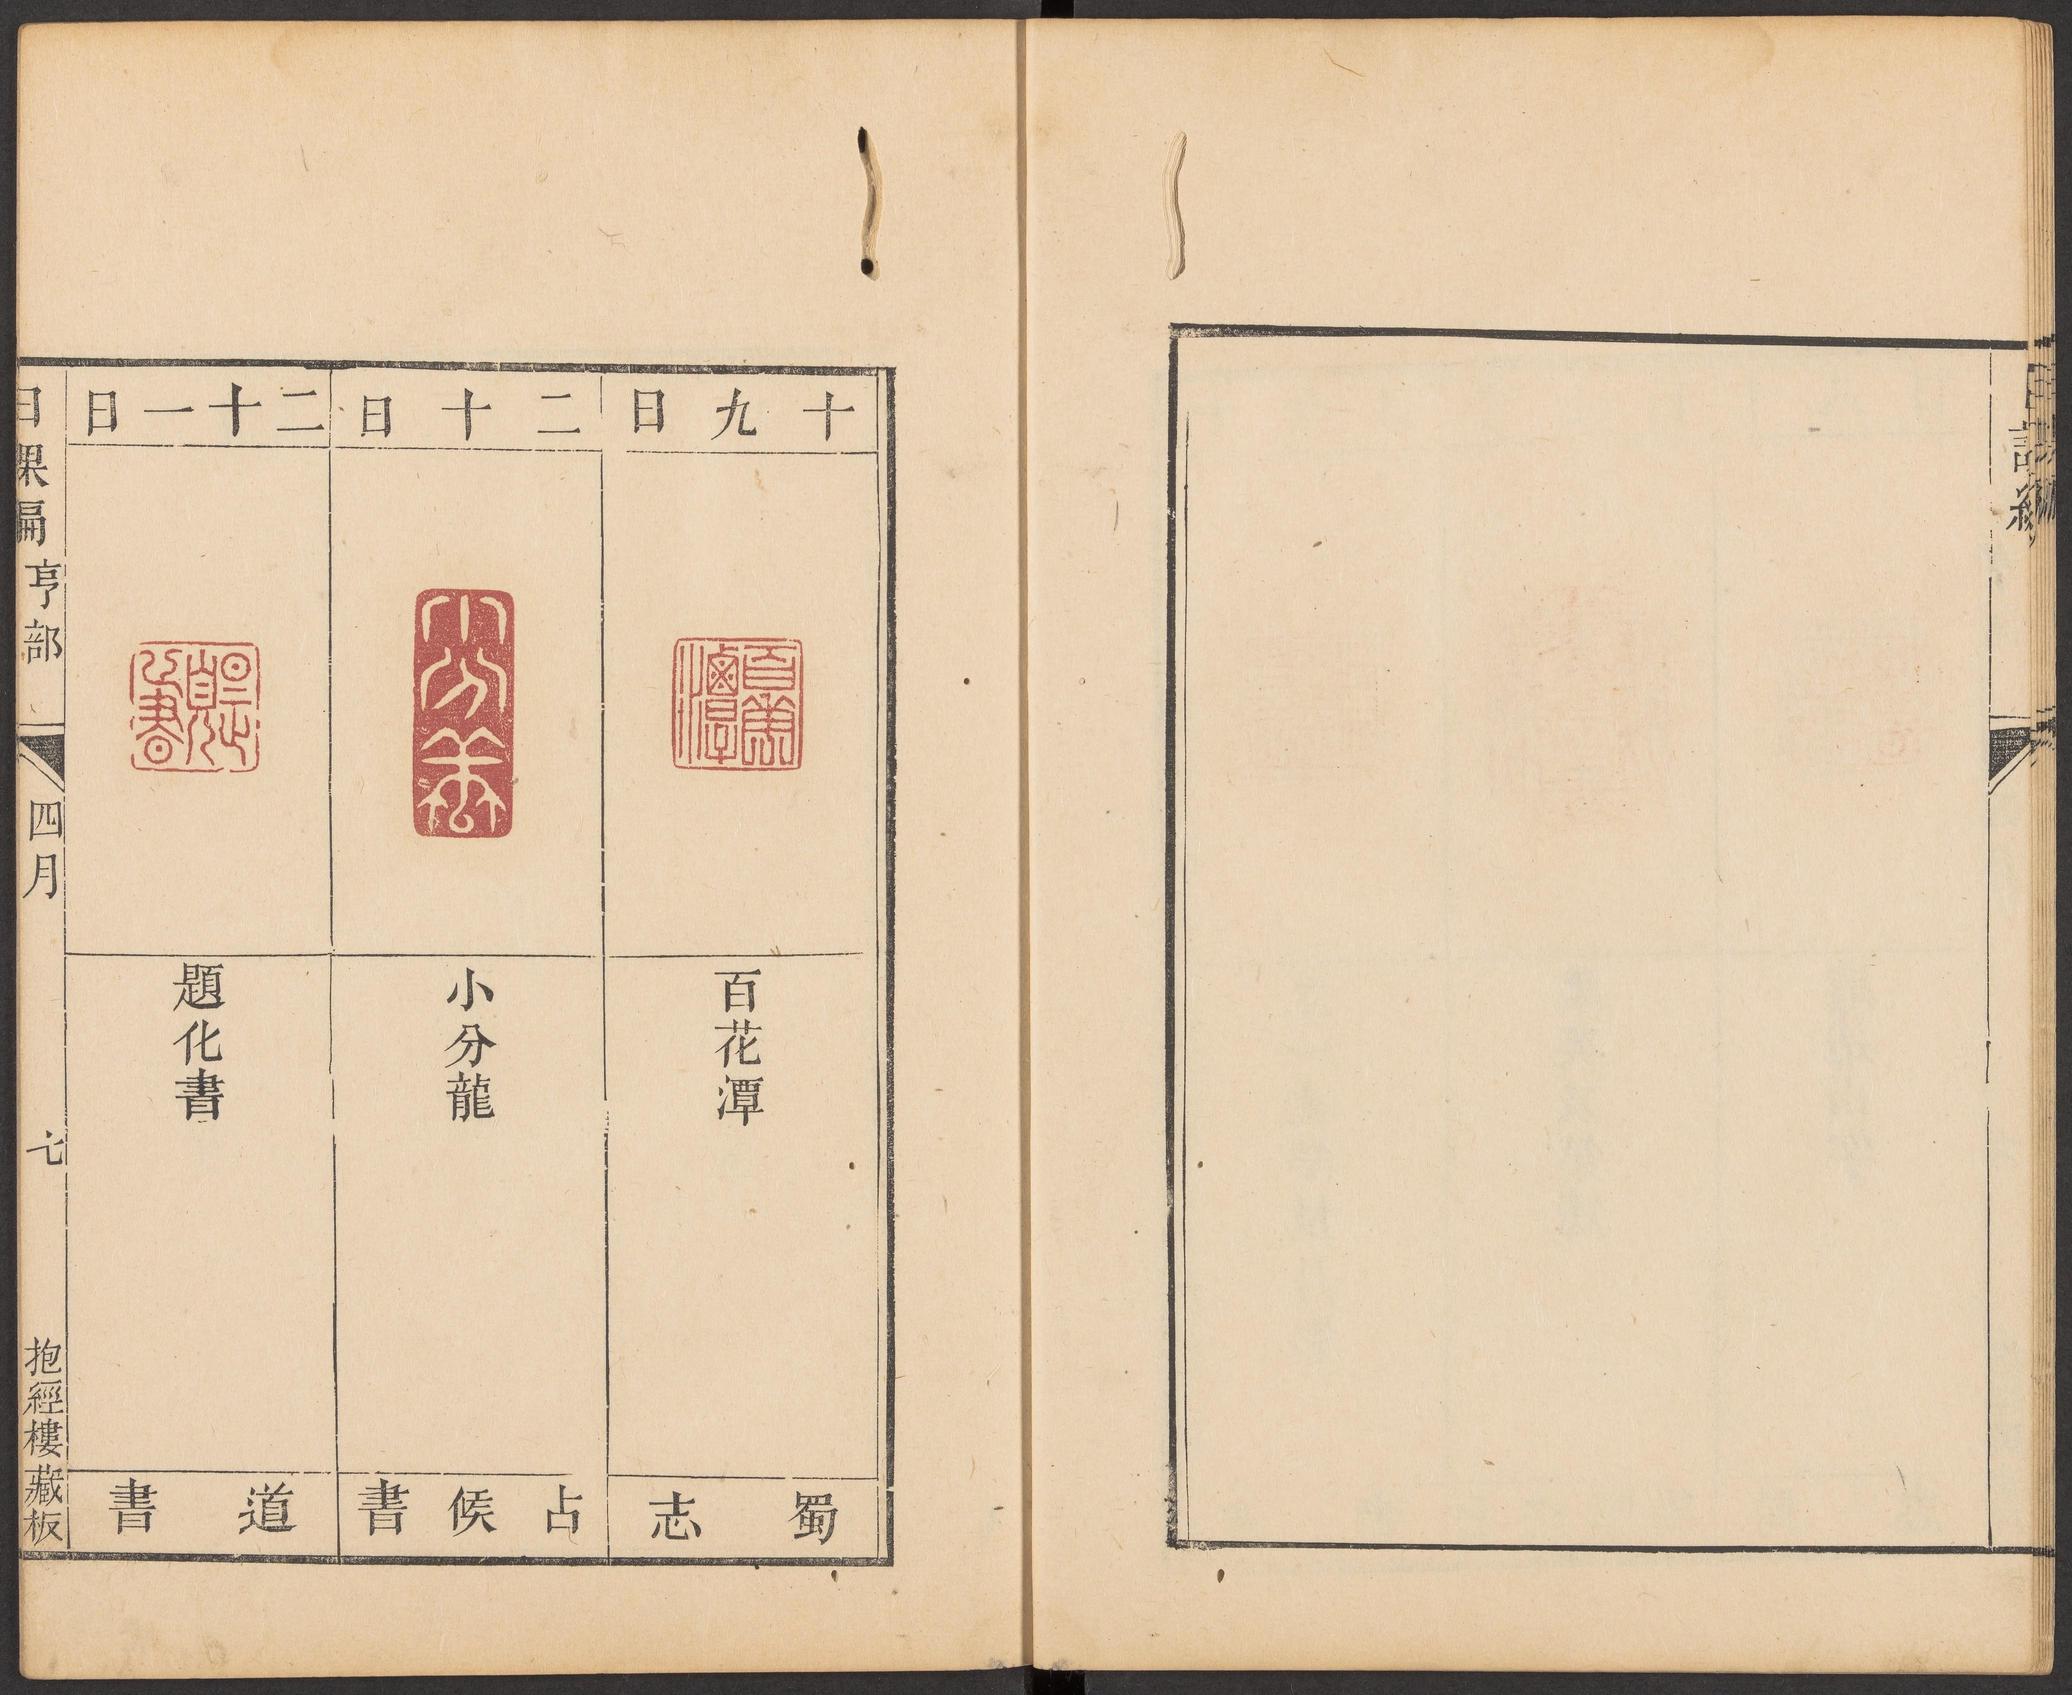 十九日
百花潭
百花潭
蜀志
二十日
小分龍
小分龍
占候書
二十一日
題化書
題化書
道書
日課編 亨部 四月 七 抱經樓藏板